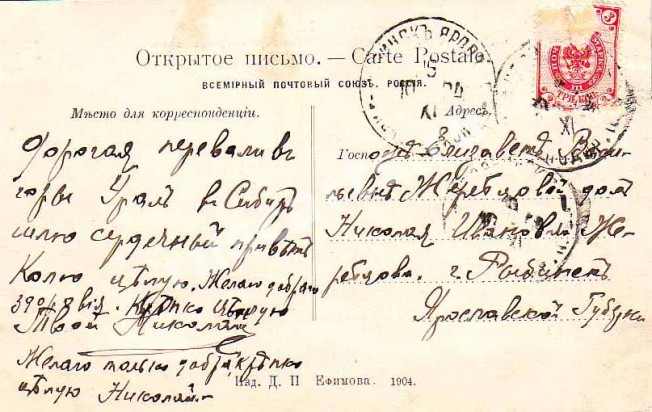 Открытое письмо. — Carte Postale
ВСЕМІРНЫЙ ПОЧТОВЫЙ СОЮЗЪ. РОССІЯ.
Мѣсто для корреспонденціи.
Адресъ.
Дорогая переваливъ
горы Урал въ Сибирь
шлю сердечный привѣтъ
Колю цѣлую. Желаю добраго
здоровія. Крѣпко цѣлую
Твой Николай
Желаю только добра, крѣпко
цѣлую Николай
Госпожѣ Елизаветѣ Васи-
льевнѣ Жеребцовой домъ
Николая Ивановича Же-
ребцова. г. Рыбинскъ
Ярославской Губерніи
Изд. Д. П Ефимова. 1904.